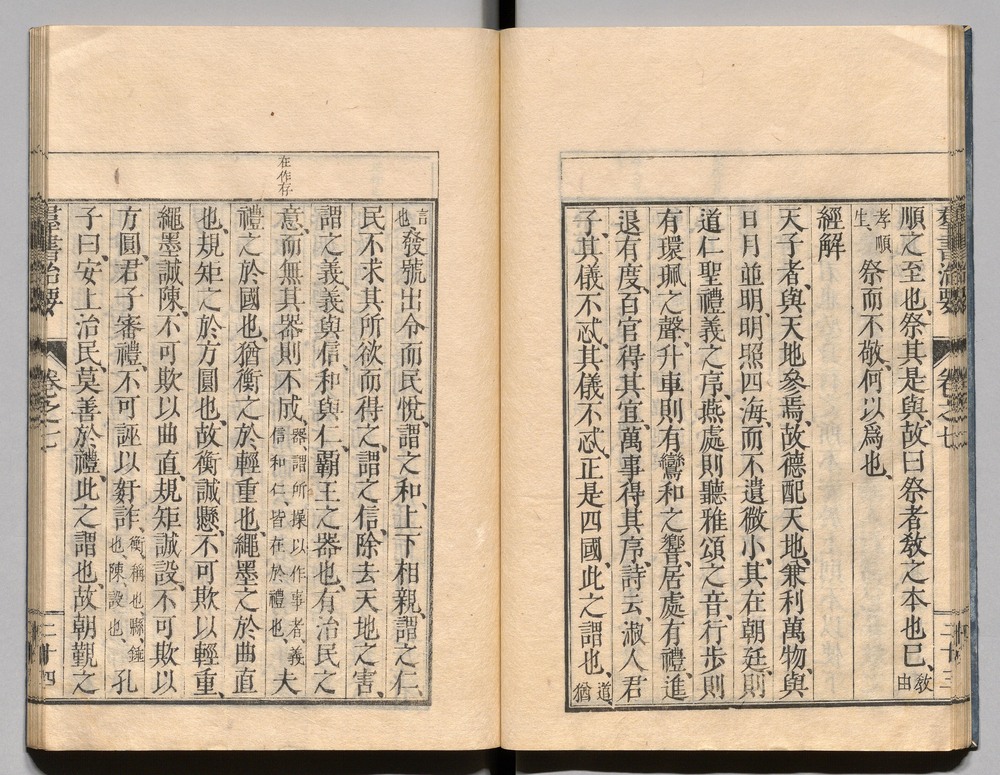 群書治要 卷之七 二十三
順之至也、祭其是與、故曰祭者敎之本也已、敎由
孝順生、祭而不敬、何以爲也、
經解
天子者、與天地參焉、故德配天地、兼利萬物、與
日月並明、明照四海、而不遺微小、其在朝廷、則
道仁聖禮義之序、燕處則聽雅頌之音、行步則
有環珮之聲、升車則有鸞和之響、居處有禮、進
退有度、百官得其宜、萬事得其序、詩云、淑人君
子、其儀不忒、其儀不忒、正是四國、此之謂也、道猶
言也發號出令而民悅、謂之和、上下相親、謂之仁、
民不求其所欲而得之、謂之信、除去天地之害、
謂之義、義與信、和與仁、霸王之器也、有治民之
在作存
意、而無其器則不成、器、謂所操以作事者、義信和仁、皆在於禮也、夫
禮之於國也、猶衡之於輕重也、繩墨之於曲直
也、規矩之於方圓也、故衡誠懸、不可欺以輕重、
繩墨誠陳、不可欺以曲直、規矩誠設、不可欺以
方圓、君子審禮、不可誣以姧詐、衡、稱也、縣、錘也、陳、設也、孔
子曰、安上治民、莫善於禮、此之謂也、故朝覲之
群書治要 卷之七 二十四